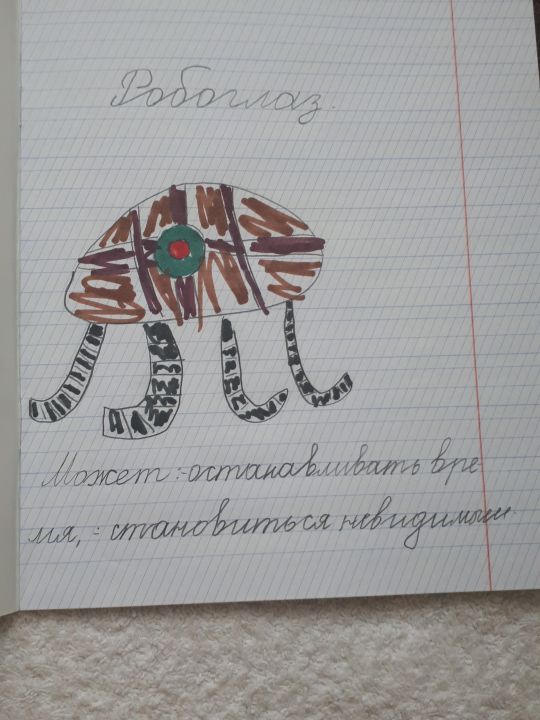 Робоглаз.
Может :-останавливать вре
мя, - становиться невидимым